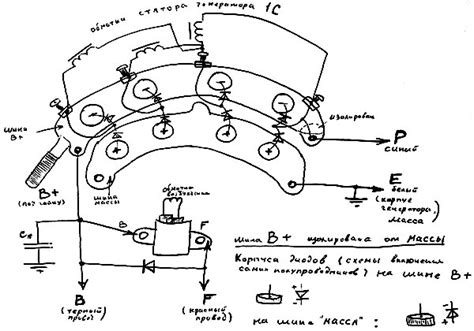 обмотки статора генератора 1С
шина
В+
изолирован
Р
синий
В+
(под гайку)
шина
массы
обмотка
возбуждения
Е
белый
(корпус
генератора)
масса
В
F
C1
В
(черный
провод)
F
(красный
провод)
шина В+ изолирована от массы
Корпуса диодов (схемы включения
самих полупроводников) на шине В+
на шине "масса" :